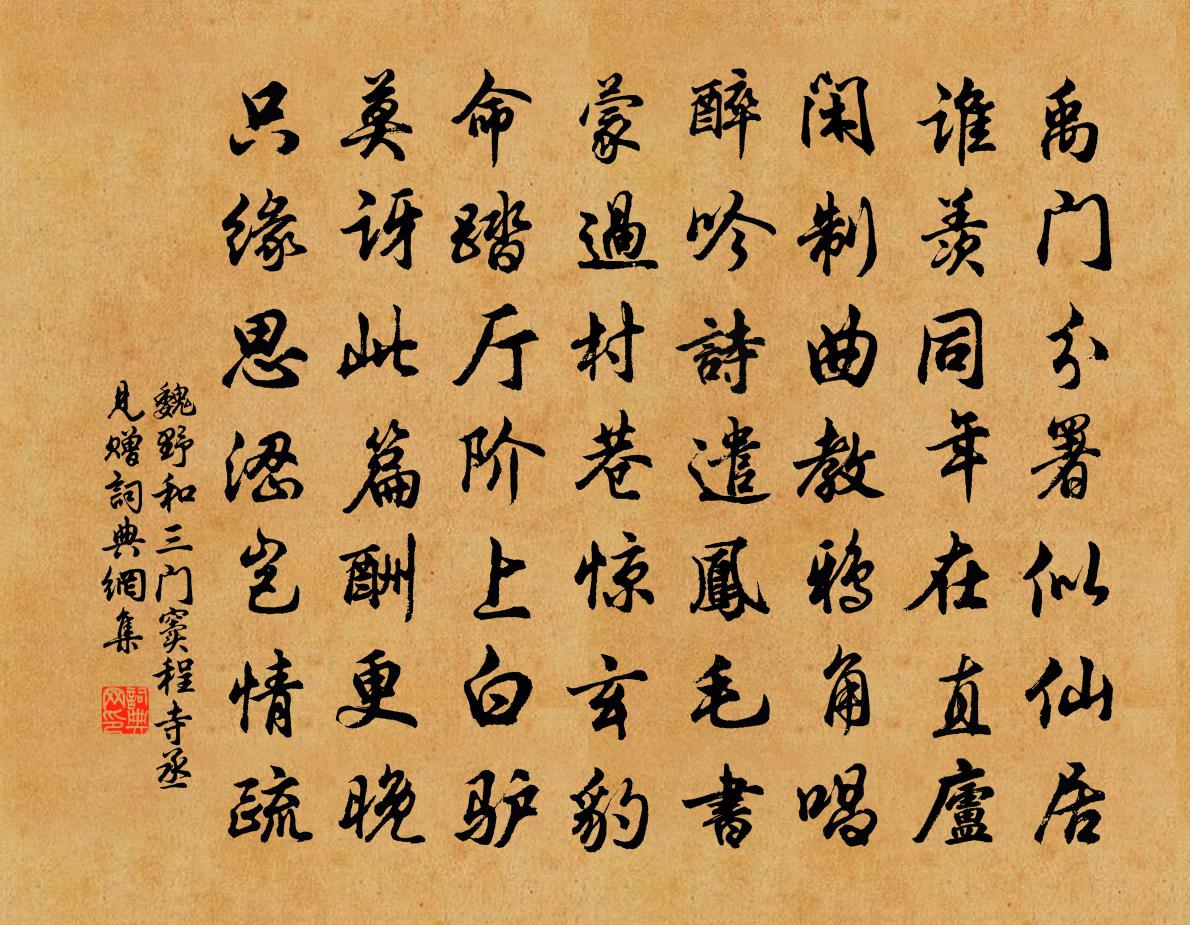 禹门分署似仙居
谁羡同年在直廬
闲制曲教鸦角唱
醉吟詩遣鳳毛書
蒙過村巷惊玄豹
命踏厅阶上白驴
莫讶此篇酬更晚
只缘思涩岂情疏
魏野和三门窦程寺丞
见赠詞典網集
詞典
网印